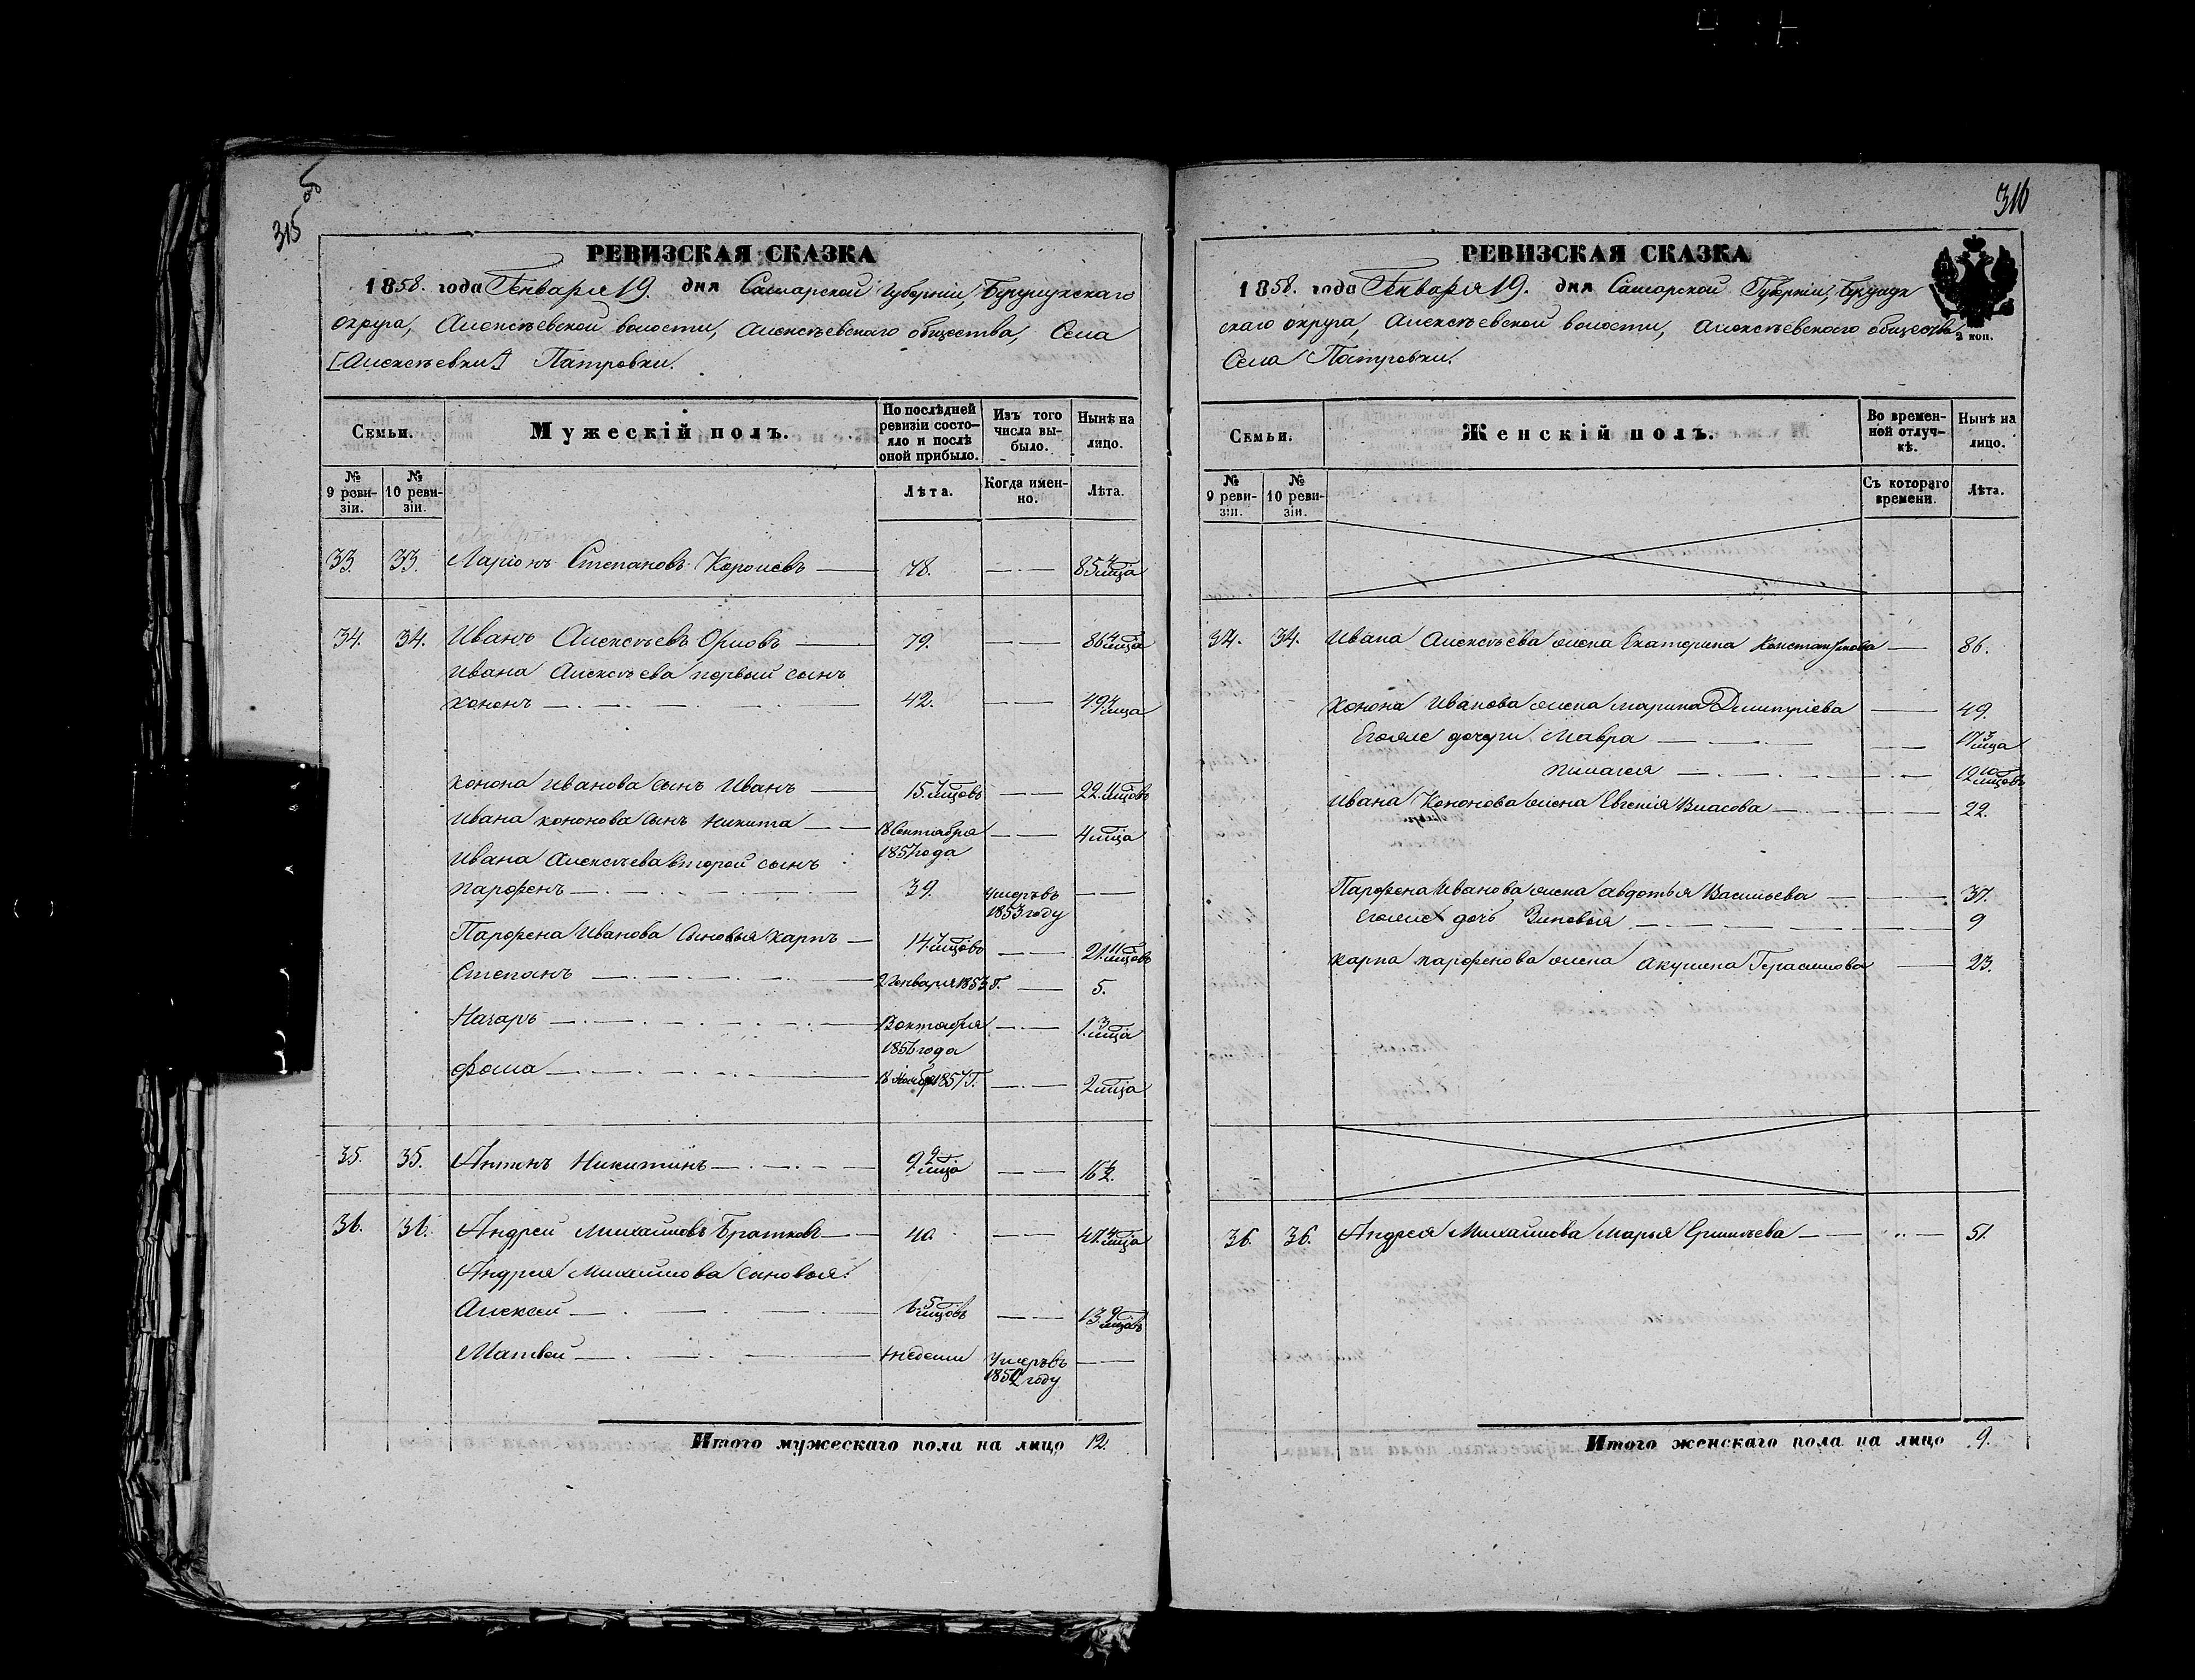 315 об
РЕВИЗСКАЯ СКАЗКА
1858. года Генваря 19. дня Самарской Губерніи, Бузулукскаго
округа, Алексѣевской волости, Алексѣевскаго общества, Села
[Алексѣевки] Патровки.
Семьи.
Мужескій полъ.
По послѣдней ревизіи состо-яло и послѣ оной прибыло.
Изъ того числа вы-было.
Нынѣ на лицо.
№ 9 реви-зіи.
№ 10 реви-зіи.
Лѣта.
Когда имен-но.
Лѣта.
33. 33. Ларіонъ Степановъ 78. 85 4 мца
34. 34. Иванъ Алексѣевъ Орловъ 79. 86 4 мца
Ивана Алексѣева первый сынъ
Кононъ 42. 49 4 мца
Конона Иванова сынъ Иванъ 15. 7 мцовъ 22. 11 мцовъ
Ивана Кононова сынъ Никита 18 Сентября 1857 года 4 мца
Ивана Алексѣева второй сынъ
Парфенъ 39. Умеръ въ 1853 году
Парфена Иванова сыновья Карпъ 14. 7 мцовъ 21. 11 мцовъ
Степанъ 2 Генваря 1853 г. 5.
Назаръ Октября 1856 года 1. 3 мца
Фома 18 Ноября 1857 г. 2 мца
35. 35. Антонъ Никитинъ 9 2 мца 16 ½.
36. 36. Андрей Михайловъ Братковъ 40. 47. 4 мца
Андрея Михайлова сыновья:
Алексей 6 5 мцовъ 13. 9 мцовъ
Матвей недели Умеръ въ году
Итого мужескаго пола на лицо 12.
316
РЕВИЗСКАЯ СКАЗКА
1858. года Генваря 19. дня Самарской Губерніи, Бузулук
скаго округа, Алексѣевской волости, Алексѣевскаго общества
Села Патровки.
2 коп.
Семьи.
Женскій полъ.
Во времен-ной отлуч-кѣ.
Нынѣ на лицо.
№ 9 реви-зіи.
№ 10 реви-зіи.
Съ котораго времени.
Лѣта.
34. 34. Ивана Алексѣева жена Екатерина Константинова 86.
Конона Иванова жена Марина Димитріева 49.
Егоже дочери Мавра 17 3 мца
Пилагея 12 10 мцовъ
Ивана Кононова жена Евгенія Власова 22.
Парфена Иванова жена Авдотья Васильева 37.
Егоже дочь Зиновья 9
Карпа Парфенова жена Акулина Герасимова 23.
36. 36. Андрея Михайлова Марья 51.
Итого женскаго пола на лицо 9.